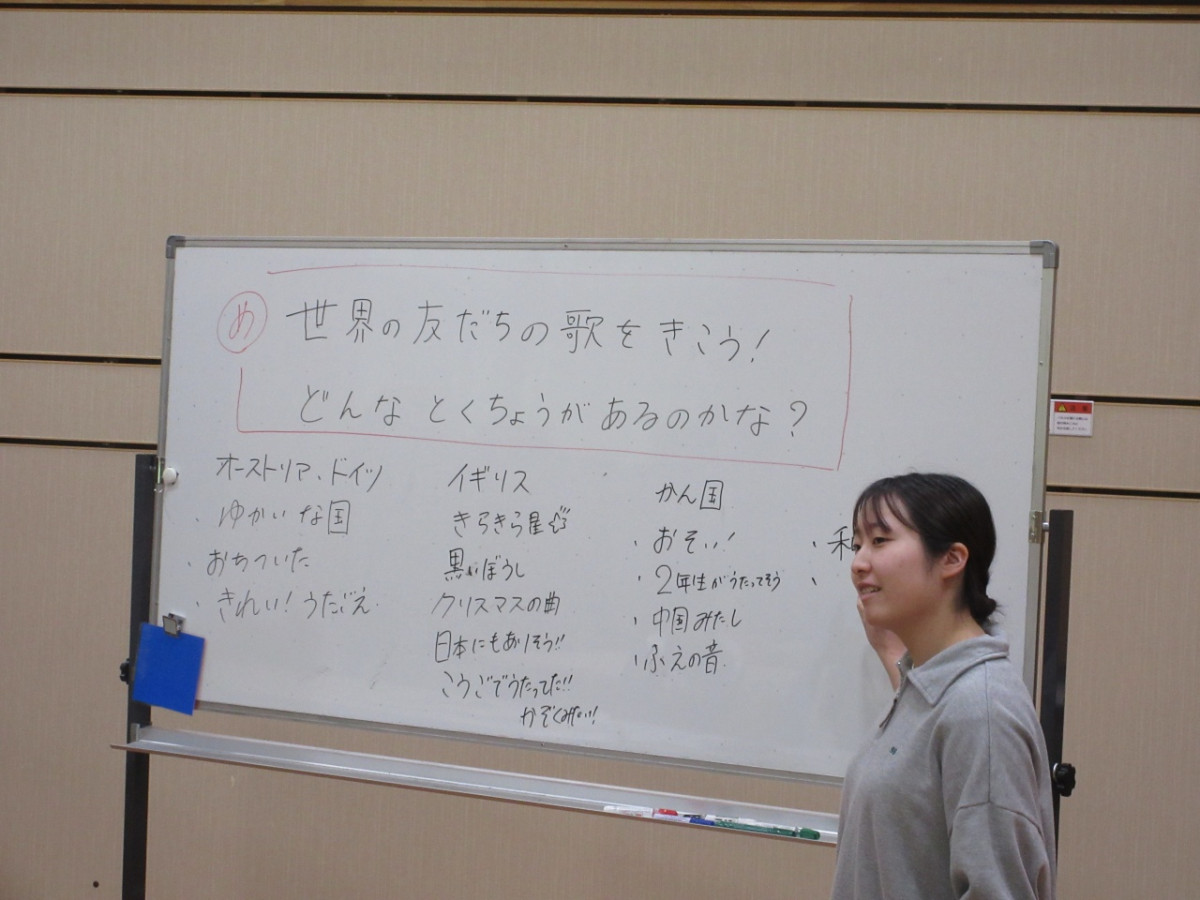 め 世界の友だちの歌をきこう!
どんなとくちょうがあるのかな?
オーストリア、ドイツ
・ゆかいな国
・おちついた
・きれい!うたごえ
イギリス
きらきら星☆
黒いぼうし
クリスマスの曲
日本にもありそう!!
こうごでうたってた!!
かぞくみたい!
かん国
・おそい!
・2年生がうたってそう
・中国みたい
・ふえの音
・
・
注意